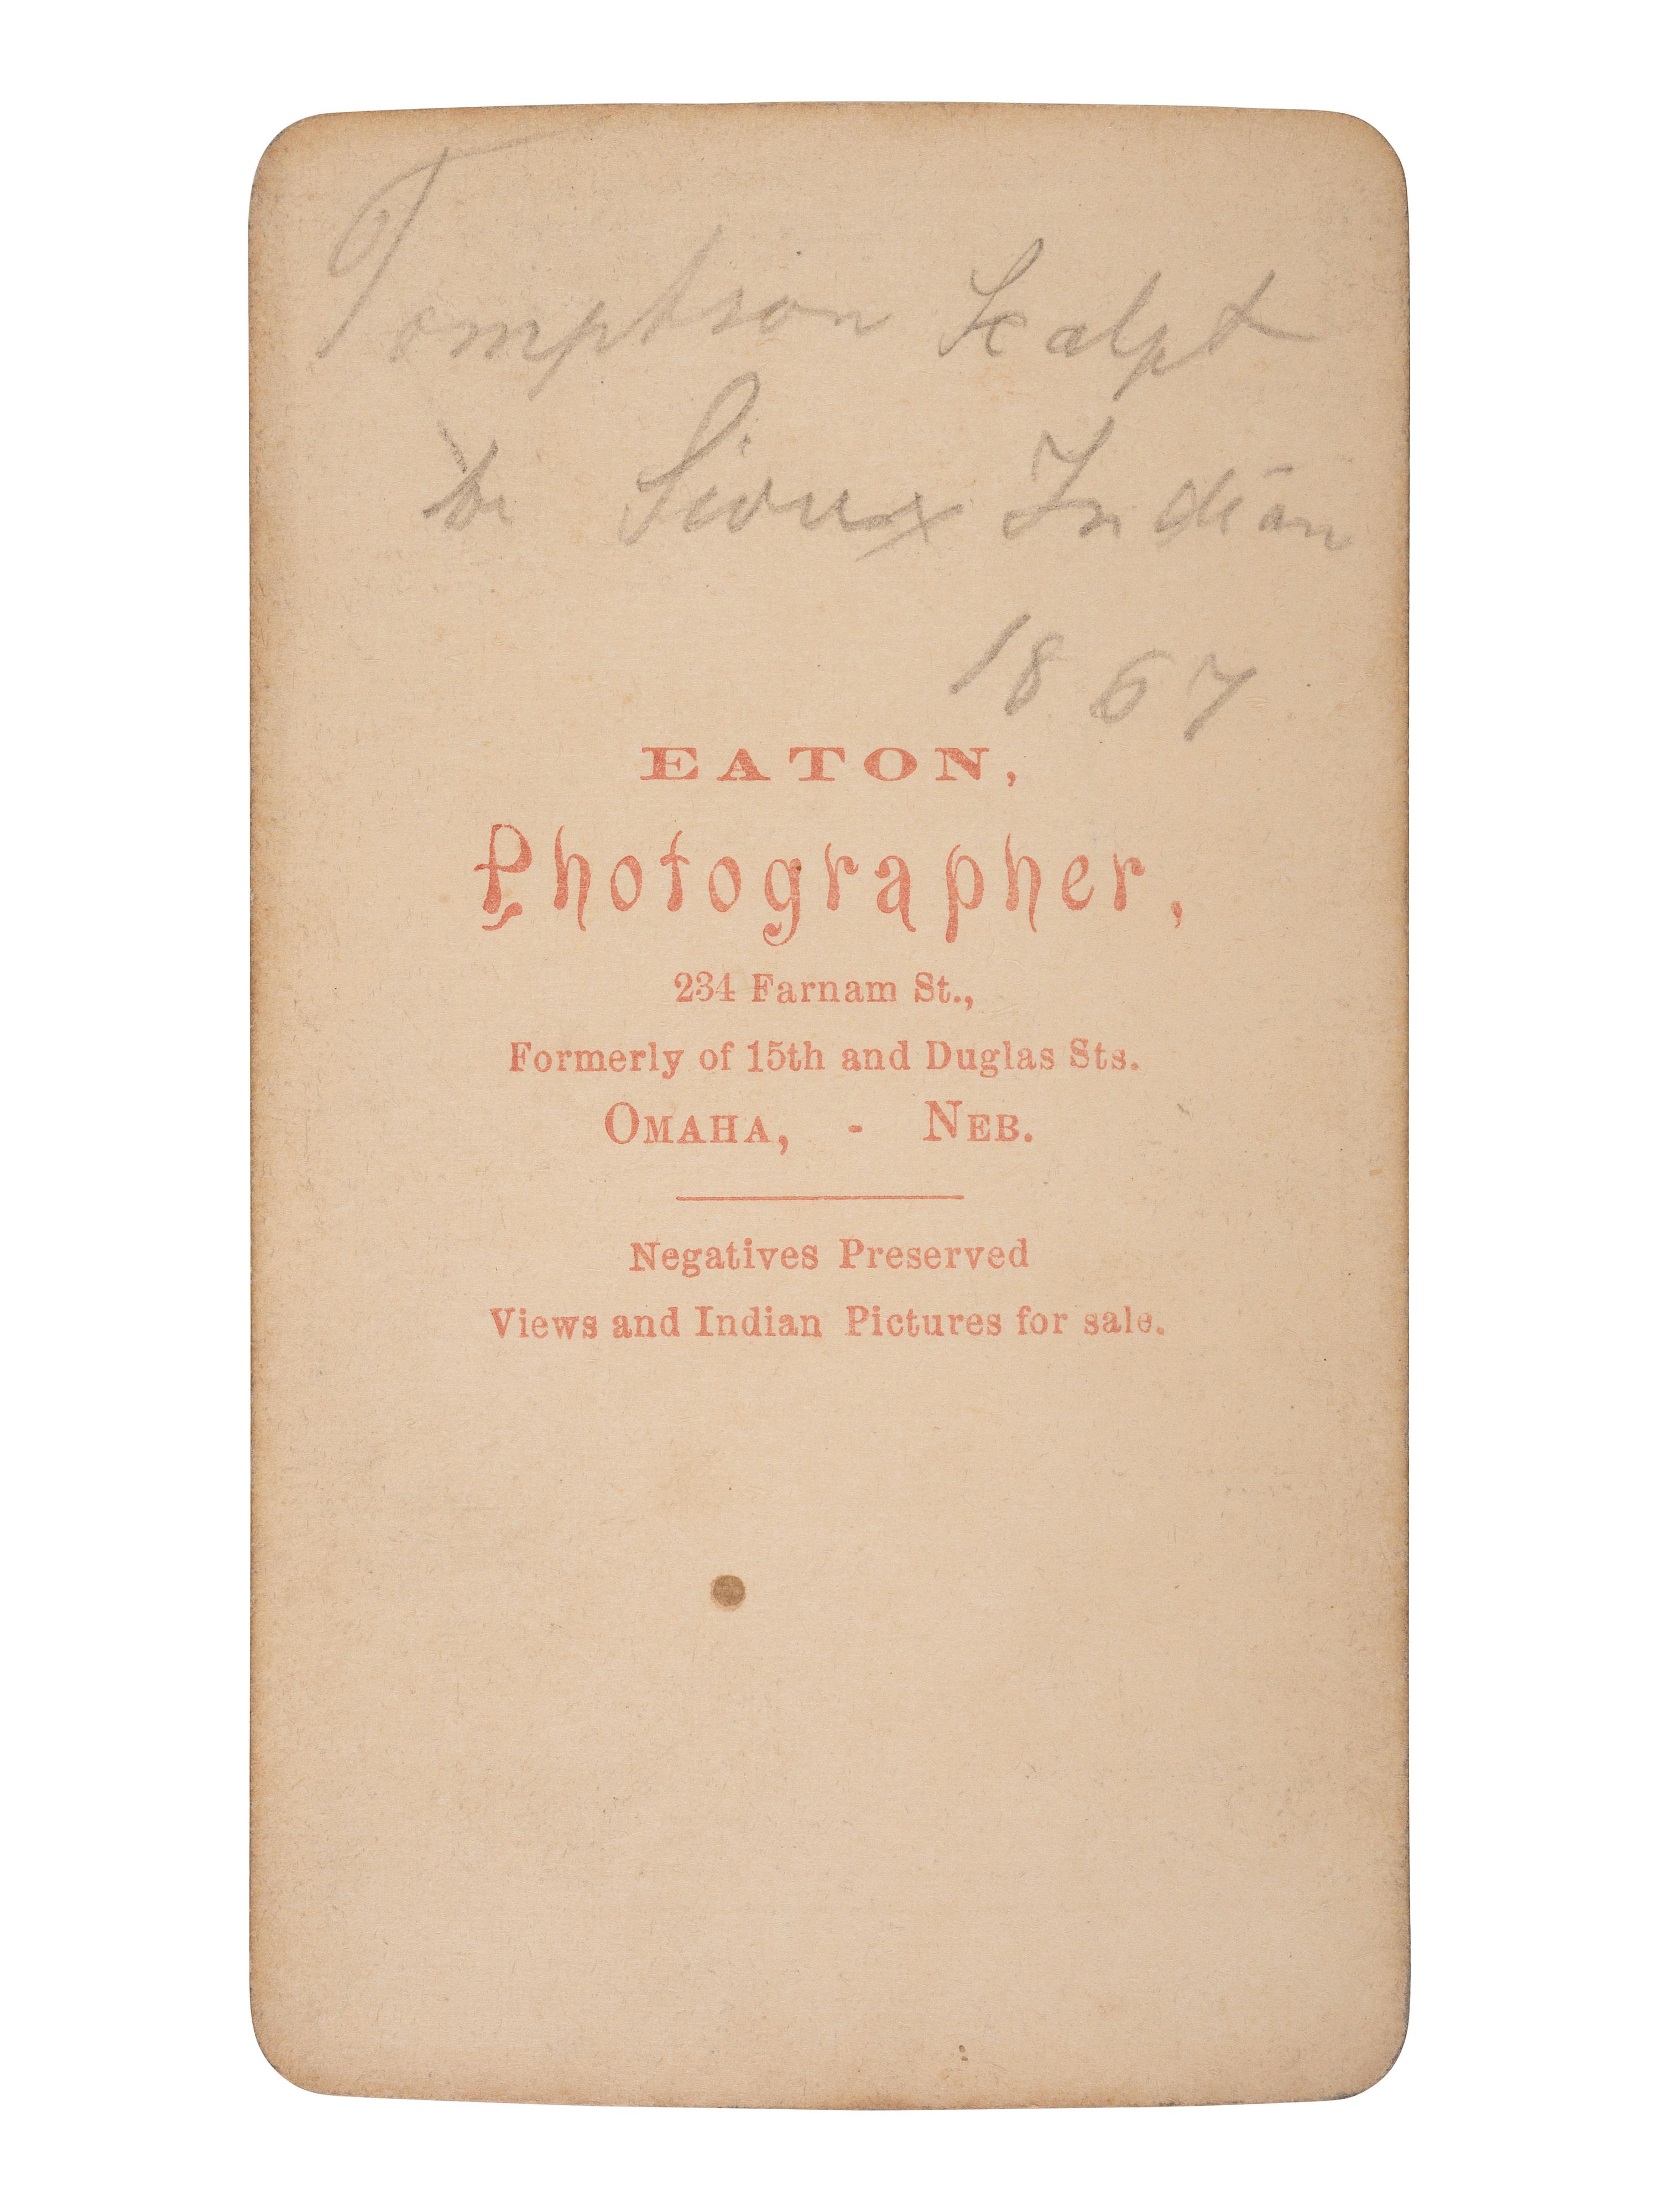 Tomptson Scalpt
Sioux Indian
1867
EATON,
Photographer,
234 Farnam St.,
Formerly of 15th and Duglas Sts.
OMAHA, - NEB.
Negatives Preserved
Views and Indian Pictures for sale.